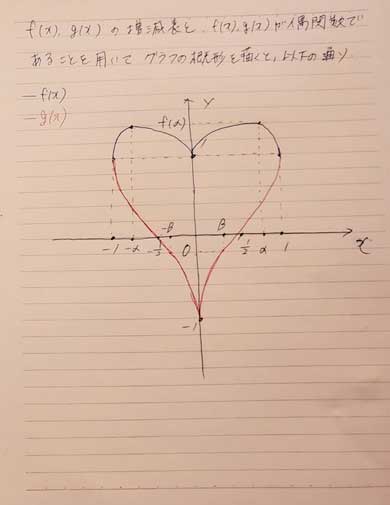 f(x), g(x) の増減表と f(x), g(x) が偶関数で
あることを用いて グラフの概形を描くと、以下の通り
—f(x)
—g(x)
y
f(α)
1
-1 -α -1/2 -β 0 β 1/2 α 1 x
-1